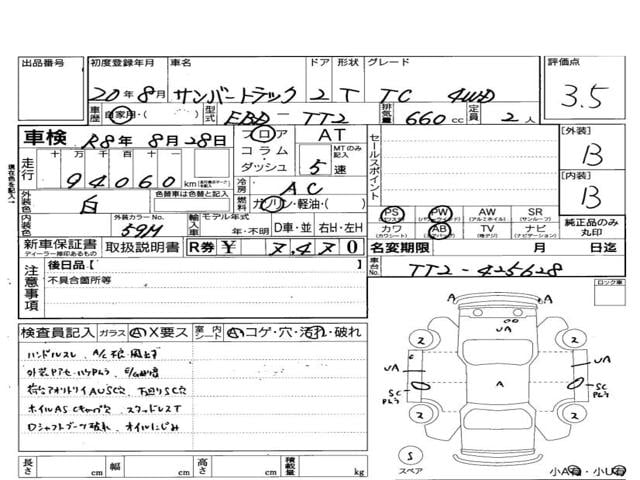 出品番号 初度登録年月 車名 ドア 形状 グレード 評価点
20年8月 サンバートラック 2 T TC 4WD 3.5
車歴 自家用・( ) 型式 EBD-TT2 排気量 660cc 定員 2人
車検 R8年8月28日 フロア AT セールスポイント [外装]
コラム・ MTのみ記入 B
走行 十万 万 千 百 十 ダッシュ 5速
94060 km [内装]
冷房 AC B
外装色 白 色替車は色替と記入 燃料 ガソリン・軽油・( )
PS PW AW SR
(パワステ) (パワーウインドウ) (アルミホイル) (サンルーフ)
内装色 外装カラーNo. 59H 輸入車 モデル年式 年・不明 D車・並 右H・左H カワ AB TV ナビ 純正品のみ丸印
(カワシート) (エアバック) (地デジ) (ナビゲーション)
新車保証書 取扱説明書 R券 ¥ 7,470 名変期限 月 日迄
ディーラー捺印あるもの
現在色を記入
注意事項 後日品【 】 車台No. TT2-425628
不具合箇所等 ロック車
検査員記入 ガラス A X要ス 室内シート A コゲ・穴・汚れ・破れ
ハンドルスレ
ホイルASCキャップ欠 スタッドレスT
Dシャフトブーツ破れ オイルにじみ
A A
UA
2 2
UA UA
A
SC SC
2 2
S
スペア 小A有・小U有
長さ cm 幅 cm 高さ cm 積載量 kg